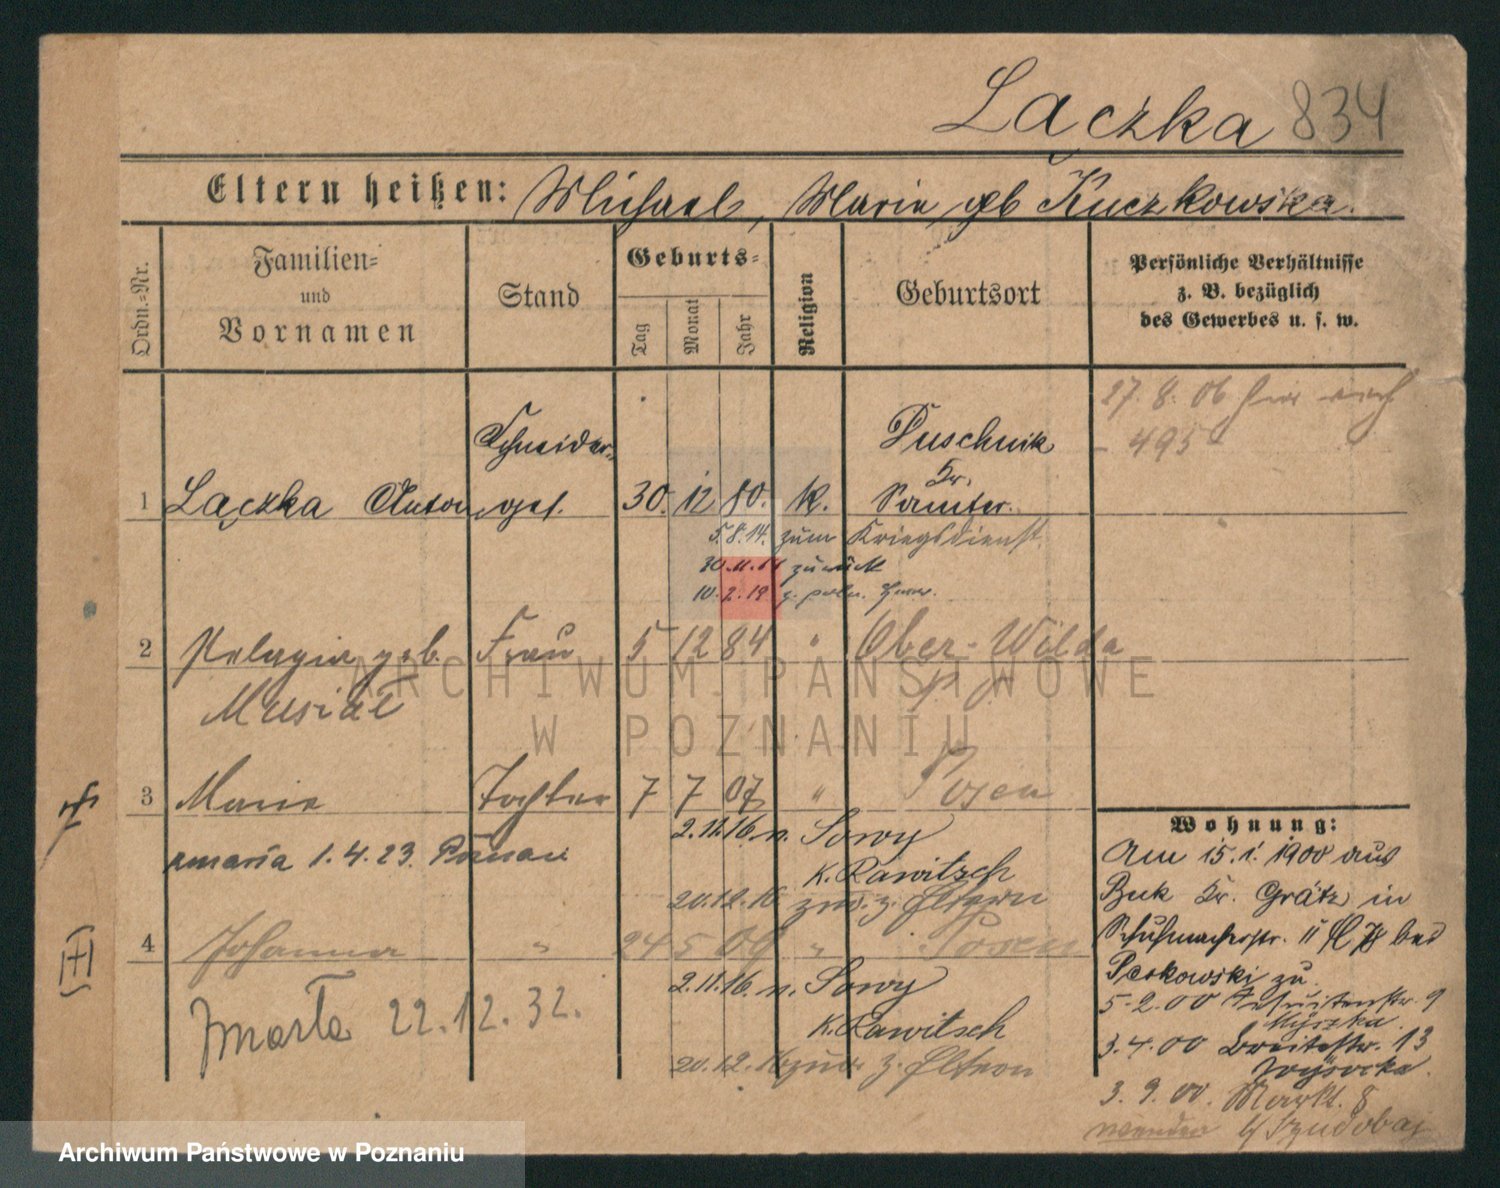 Łączka 834
Eltern heißen: Michael, Maria geb Kuczkowska.
Ordn.=Nr.
Familien=
und
Vornamen
Stand
Geburts=
Tag
Monat
Jahr
Religion
Geburtsort
Persönliche Verhältnisse
z. B. bezüglich
des Gewerbes u. s. w.
27. 8. 06 hier
495
1 Łączka Anton Schneider=
ges. 30. 12 80. k. Duschnik
Kr.
Samter.
5. 8. 14. zum Kriegsdienst
zurück
10. 2. 19 z. poln. Heer.
2 Pelagia geb. Frau 5 12 84 " Ober-Wilda
Musiał
ARCHIWUM PAŃSTWOWE
W POZNANIU
3 Maria Tochter 7 7 07 " Posen
2. 11. 16. n. Sowy
K. Rawitsch
zmarła 1. 4. 23. Poznań
20. 12. 16 zur. z. Eltern
4 Johanna " 24 5 09 " Posen
2. 11. 16. n. Sowy
K. Rawitsch
Zmarła 22. 12. 32.
20. 12. 16 zur. z. Eltern
Wohnung:
Am 15. 1. 1900 aus
Buk Kr. Grätz in
Schuhmacherstr. 11 bei
zu
5-2. 00 Jesuitenstr. 9
Myszka.
3. 4. 00 Breitestr. 13
Wysocka.
3. 9. 00. Markt. 8
Archiwum Państwowe w Poznaniu